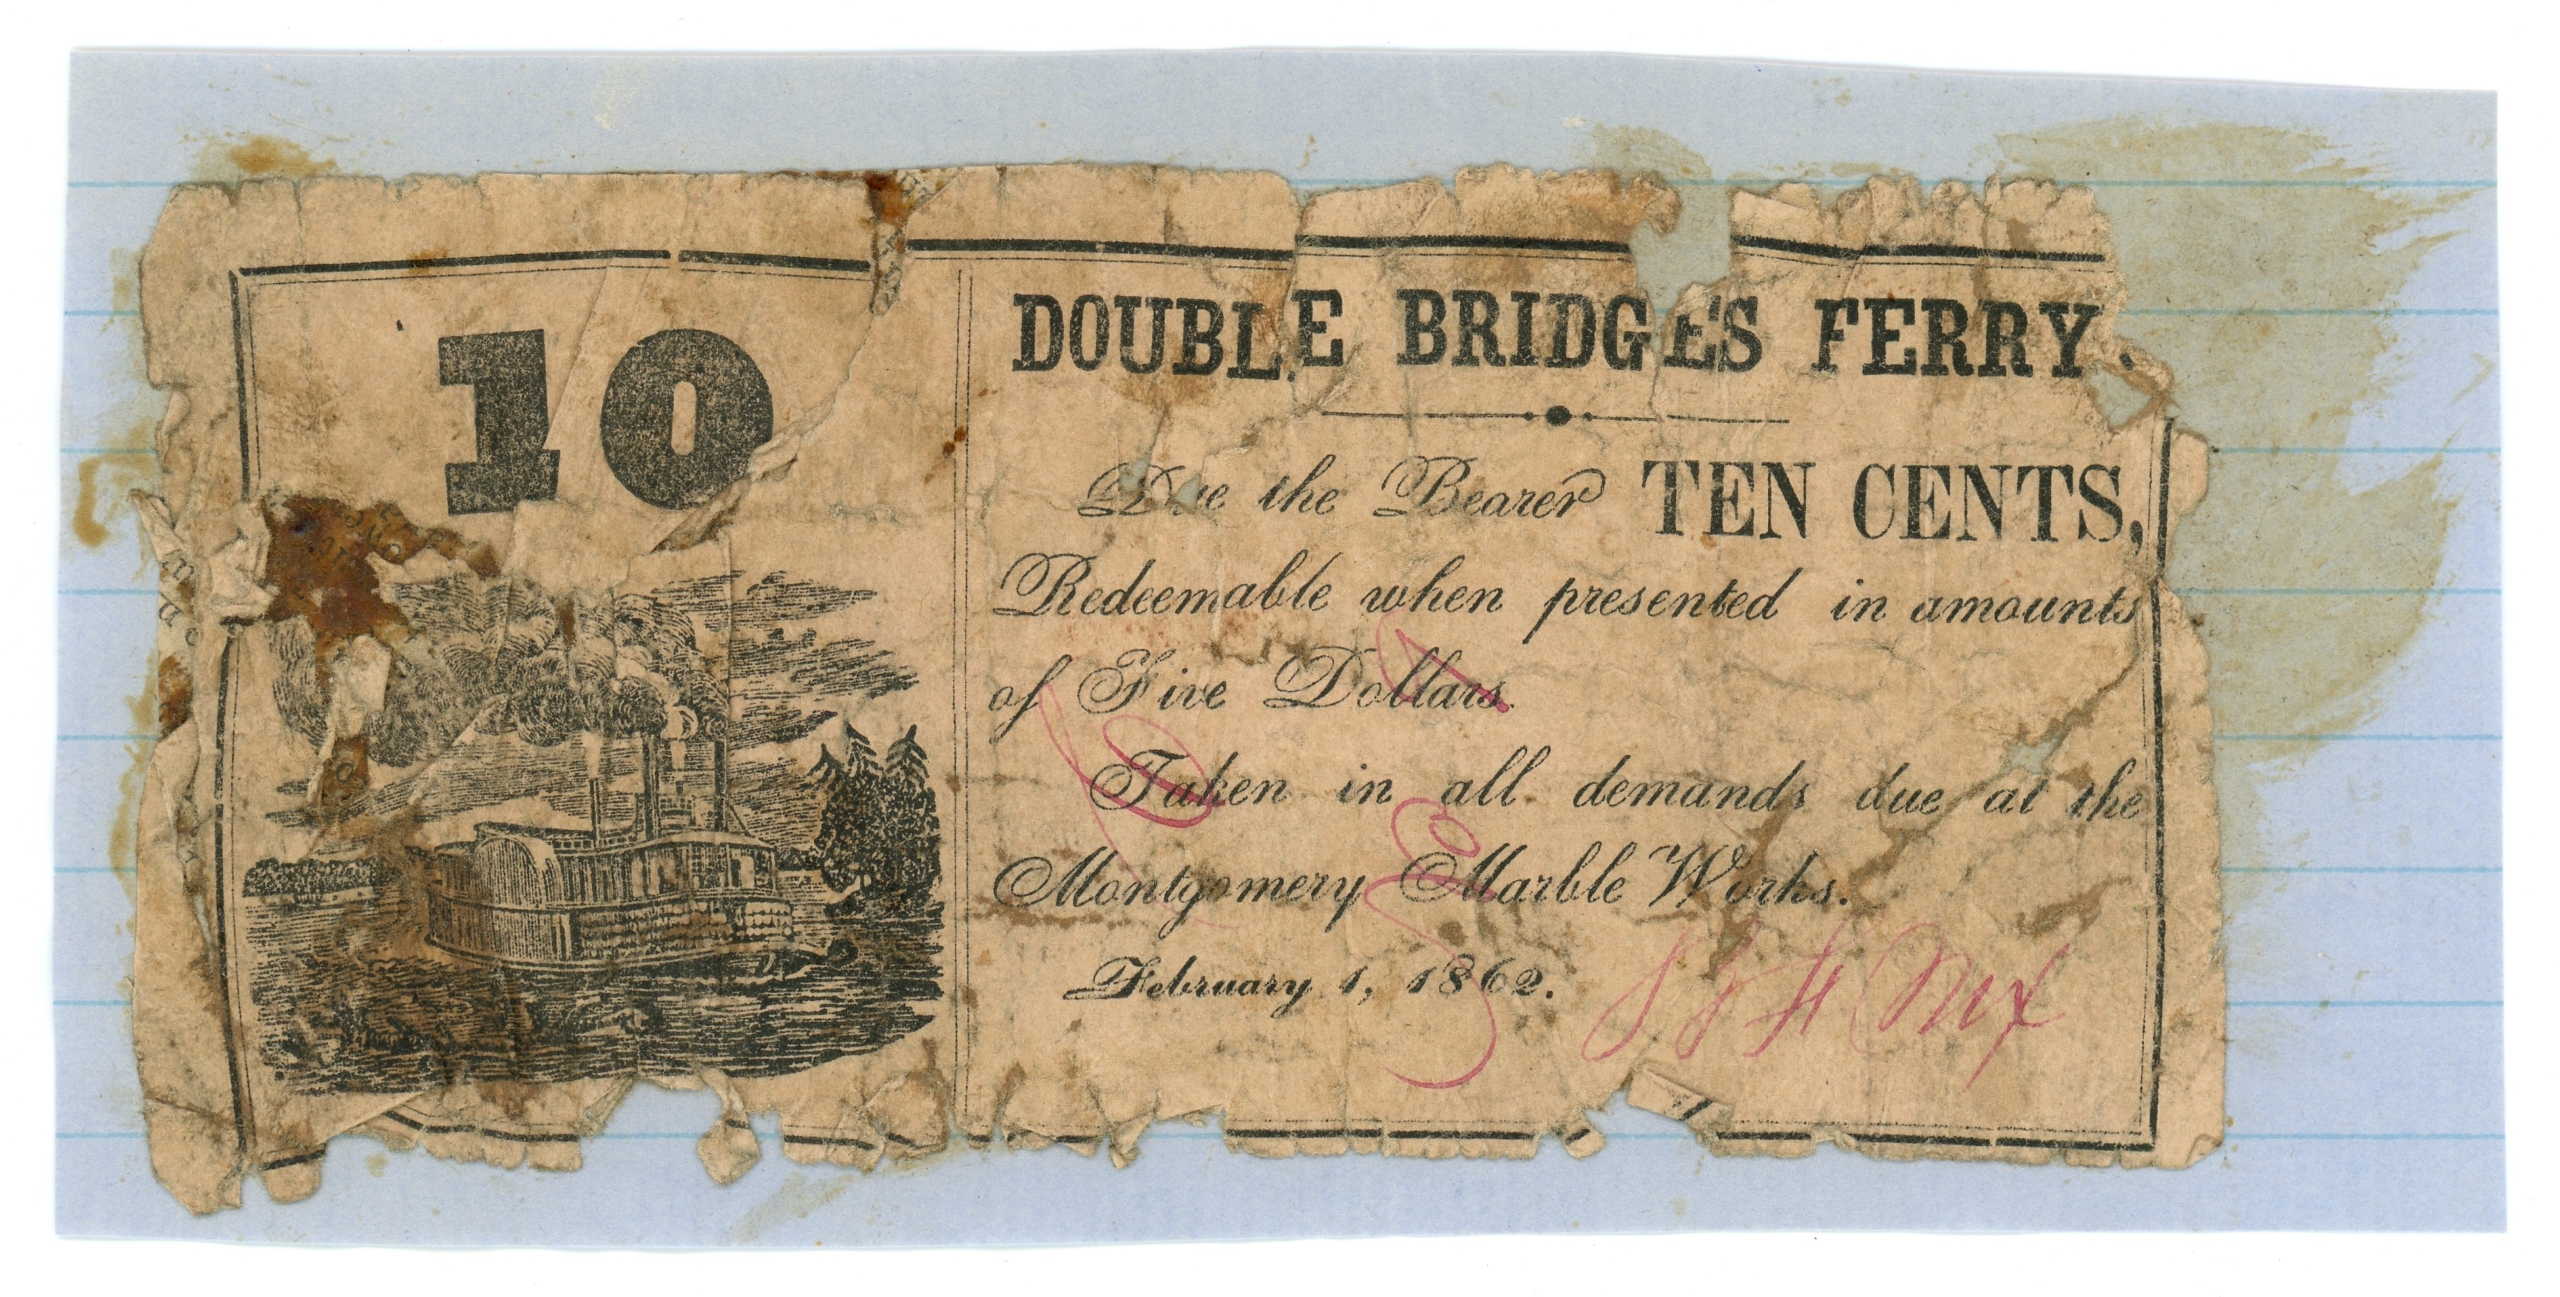 10
DOUBLE BRIDGES FERRY.
Due the Bearer TEN CENTS,
Redeemable when presented in amounts
of Five Dollars.
Taken in all demands due at the
Montgomery Marble Works.
February 1, 1862.